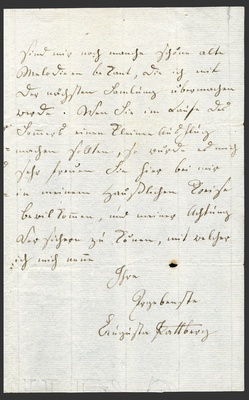 sind mir noch manche schöne alte
Melodieen bekant, die ich mit
der nächsten Samlung übermachen
werde. Wen Sie im Laufe des
Sommers einen kleinen Ausflug
machen sollten, so würde es mich
sehr freuen Sie hier bei mir
in meinem Häußlichen Kreise
bewilkommen, und meiner Achtung
Versichern zu könen, mit welcher
ich mich nene
Ihre
Ergebenste
Augusta Pattberg